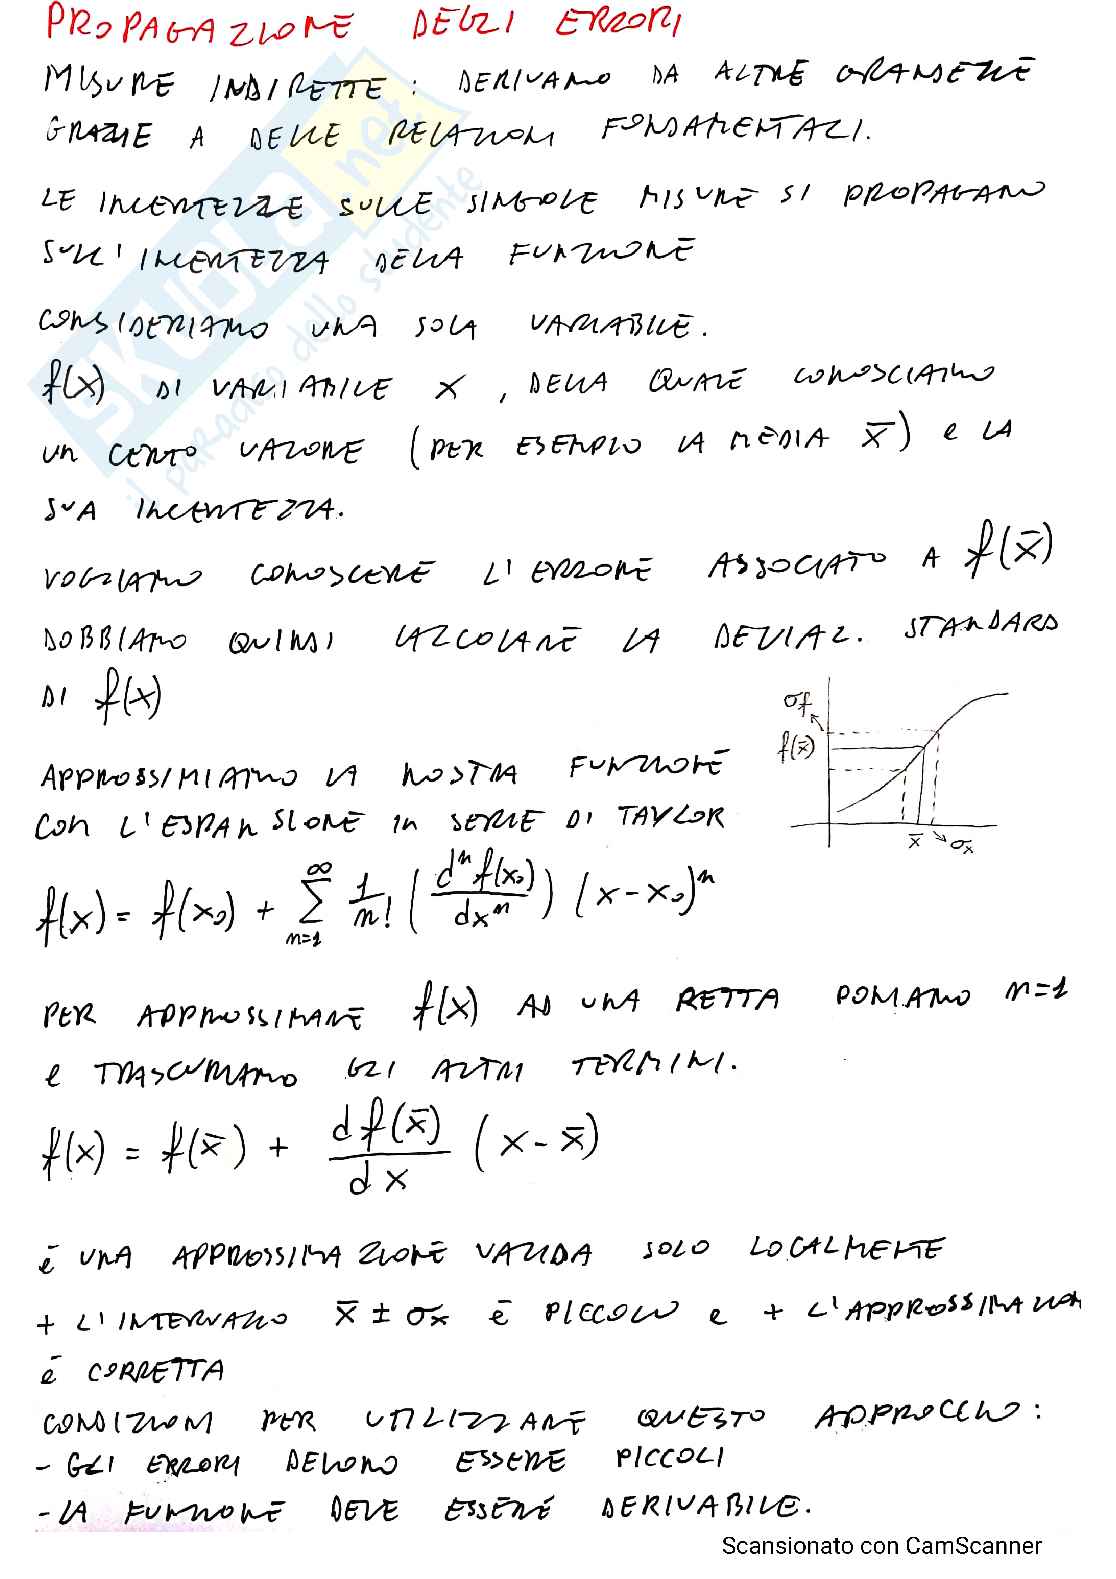 PROPAGAZIONE DEGLI ERRORI
MISURE INDIRETTE : DERIVANO DA ALTRE GRANDEZZE
GRAZIE A DELLE RELAZIONI FONDAMENTALI.
LE INCERTEZZE SULLE SINGOLE MISURE SI PROPAGANO
SULL'INCERTEZZA DELLA FUNZIONE
CONSIDERIAMO UNA SOLA VARIABILE.
f(x) DI VARIABILE x , DELLA QUALE CONOSCIAMO
UN CERTO VALORE (PER ESEMPIO LA MEDIA x̄) e LA
SUA INCERTEZZA.
VOGLIAMO CONOSCERE L'ERRORE ASSOCIATO A f(x̄)
DOBBIAMO QUINDI CALCOLARE LA DEVIAZ. STANDARD
DI f(x)
σf
f(x̄)
x̄ σx
APPROSSIMIAMO LA NOSTRA FUNZIONE
CON L'ESPANSIONE IN SERIE DI TAYLOR
f(x) = f(x₀) + ∑ₙ₌₁^∞ 1/n! (dⁿf(x₀)/dxⁿ) (x-x₀)ⁿ
PER APPROSSIMARE f(x) AD UNA RETTA PONIAMO n=1
e TRASCURIAMO GLI ALTRI TERMINI.
f(x) = f(x̄) + df(x̄)/dx (x-x̄)
è UNA APPROSSIMAZIONE VALIDA SOLO LOCALMENTE
+ L'INTERVALLO x̄ ± σx è PICCOLO e + L'APPROSSIMAZION
è CORRETTA
CONDIZIONI PER UTILIZZARE QUESTO APPROCCIO:
- GLI ERRORI DEVONO ESSERE PICCOLI
- LA FUNZIONE DEVE ESSERE DERIVABILE.
SKUOLA.net
il paradiso dello studente
Scansionato con CamScanner